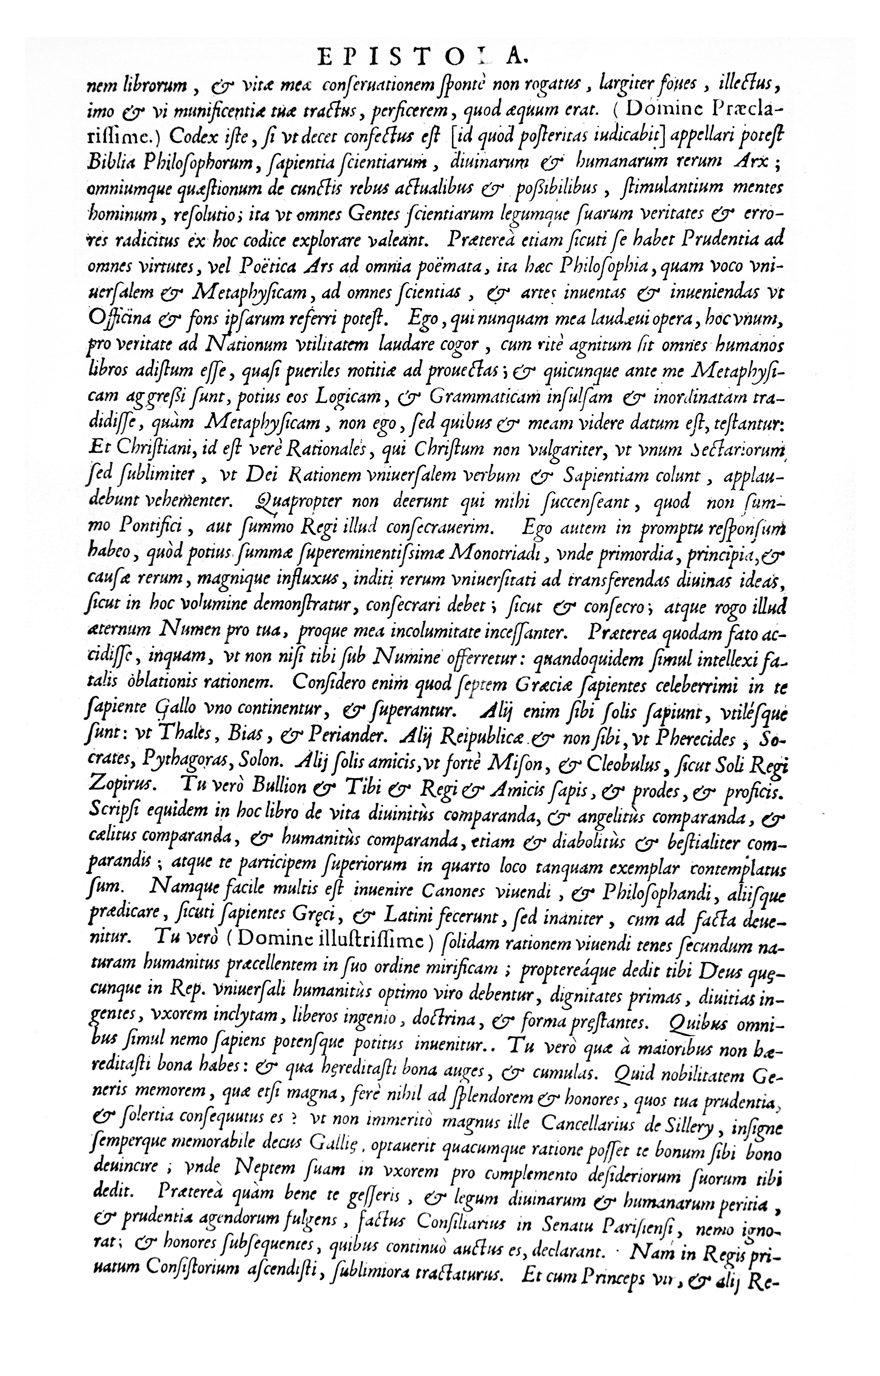 EPISTOLA.
nem librorum, & vitæ meæ conſeruationem ſpontè non rogatus, largiter foues, illectus,
imo & vi munificentiæ tuæ tractus, perficerem, quod æquum erat. (Domine Præcla-
riſſime.) Codex iſte, ſi vt decet confectus eſt [id quod poſteritas iudicabit] appellari poteſt
Biblia Philoſophorum, ſapientia ſcientiarum, diuinarum & humanarum rerum Arx;
omniumque quæſtionum de cunctis rebus actualibus & poſſibilibus, ſtimulantium mentes
hominum, reſolutio; ita vt omnes Gentes ſcientiarum legumque ſuarum veritates & erro-
res radicitus ex hoc codice explorare valeant. Præterea etiam ſicuti ſe habet Prudentia ad
omnes virtutes, vel Poëtica Ars ad omnia poëmata, ita hæc Philoſophia, quam voco vni-
uerſalem & Metaphyſicam, ad omnes ſcientias, & artes inuentas & inueniendas vt
Officina & fons ipſarum referri poteſt. Ego, qui nunquam mea laudaui opera, hoc vnum,
pro veritate ad Nationum vtilitatem laudare cogor, cum ritè agnitum ſit omnes humanos
libros adiſtum eſſe, quaſi pueriles notitiæ ad prouectas; & quicunque ante me Metaphyſi-
cam aggreſſi ſunt, potius eos Logicam, & Grammaticam inſulſam & inordinatam tra-
didiſſe, quàm Metaphyſicam, non ego, ſed quibus & meam videre datum eſt, teſtantur:
Et Chriſtiani, id eſt verè Rationales, qui Chriſtum non vulgariter, vt vnum Sectariorum
ſed ſublimiter, vt Dei Rationem vniuerſalem verbum & Sapientiam colunt, applau-
debunt vehementer. Quapropter non deerunt qui mihi ſuccenſeant, quod non ſum-
mo Pontifici, aut ſummo Regi illud conſecrauerim. Ego autem in promptu reſponſum
habeo, quòd potius ſummæ ſupereminentiſſimæ Monotriadi, vnde primordia, principia, &
cauſæ rerum, magnique influxus, inditi rerum vniuerſitati ad transferendas diuinas ideas,
ſicut in hoc volumine demonſtratur, conſecrari debet; ſicut & conſecro; atque rogo illud
æternum Numen pro tua, proque mea incolumitate inceſſanter. Præterea quodam fato ac-
cidiſſe, inquam, vt non niſi tibi ſub Numine offerretur: quandoquidem ſimul intellexi fa-
talis oblationis rationem. Conſidero enim quod ſeptem Græciæ ſapientes celeberrimi in te
ſapiente Gallo vno continentur, & ſuperantur. Alij enim ſibi ſolis ſapiunt, vtiléſque
ſunt: vt Thales, Bias, & Periander. Alij Reipublicæ & non ſibi, vt Pherecides, So-
crates, Pythagoras, Solon. Alij ſolis amicis, vt fortè Miſon, & Cleobulus, ſicut Soli Regi
Zopirus. Tu verò Bullion & Tibi & Regi & Amicis ſapis, & prodes, & proficis.
Scripſi equidem in hoc libro de vita diuinitùs comparanda, & angelitùs comparanda, &
cælitus comparanda, & humanitùs comparanda, etiam & diabolitùs & beſtialiter com-
parandis; atque te participem ſuperiorum in quarto loco tanquam exemplar contemplatus
ſum. Namque facile multis eſt inuenire Canones viuendi, & Philoſophandi, aliiſque
prædicare, ſicuti ſapientes Gręci, & Latini fecerunt, ſed inaniter, cum ad facta deue-
nitur. Tu verò (Domine illuſtriſſime) ſolidam rationem viuendi tenes ſecundum na-
turam humanitus præcellentem in ſuo ordine mirificam; proptereáque dedit tibi Deus quę-
cunque in Rep. vniuerſali humanitùs optimo viro debentur, dignitates primas, diuitias in-
gentes, vxorem inclytam, liberos ingenio, doctrina, & forma pręſtantes. Quibus omni-
bus ſimul nemo ſapiens potenſque potitus inuenitur.. Tu verò quæ à maioribus non hæ-
reditaſti bona habes: & qua hęreditaſti bona auges, & cumulas. Quid nobilitatem Ge-
neris memorem, quæ etſi magna, ferè nihil ad ſplendorem & honores, quos tua prudentia,
& ſolertia conſequutus es? vt non immeritò magnus ille Cancellarius de Sillery, inſigne
ſemperque memorabile decus Gallię, optauerit quacumque ratione poſſet te bonum ſibi bono
deuincire; vnde Neptem ſuam in vxorem pro complemento deſideriorum ſuorum tibi
dedit. Præterea quàm bene te geſſeris, & legum diuinarum & humanarum peritia,
& prudentia agendorum fulgens, factus Conſiliarius in Senatu Pariſienſi, nemo igno-
rat; & honores ſubſequentes, quibus continuò auctus es, declarant. Nam in Regis pri-
uatum Conſiſtorium aſcendiſti, ſublimiora tractaturus. Et cum Princeps vir, & alij Re-